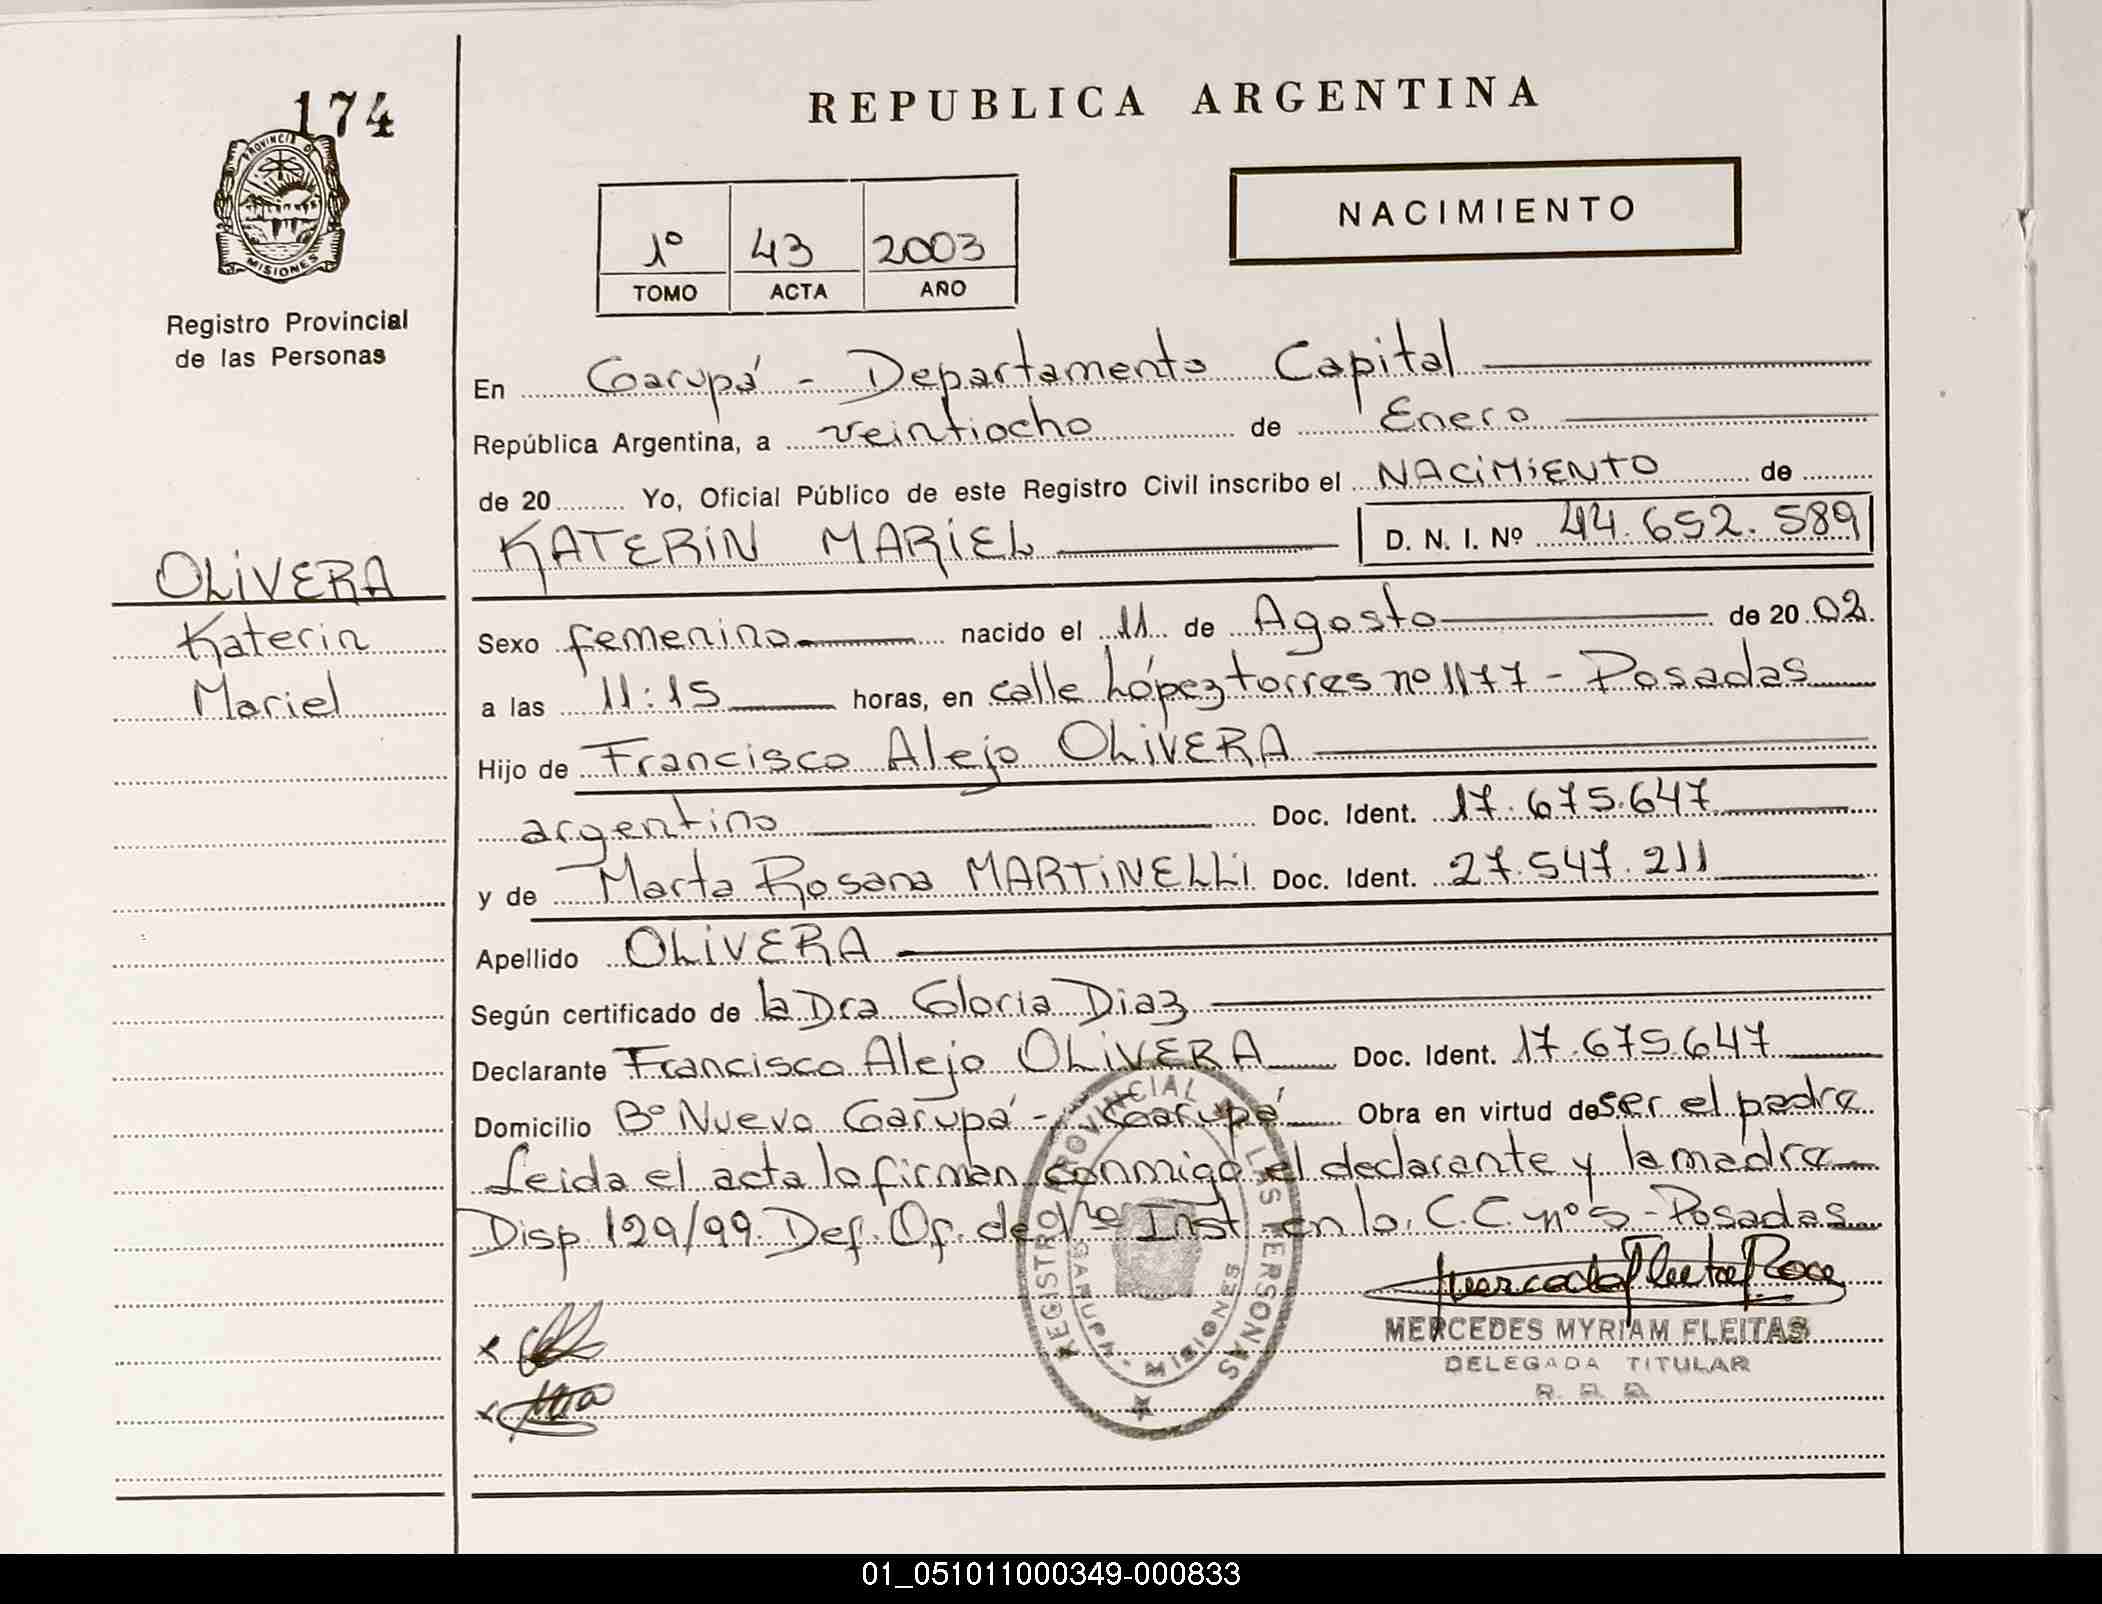 174
PROVINCIA D
MISIONES
Registro Provincial
de las Personas
OLIVERA
Katerin
Mariel
REPUBLICA ARGENTINA
1º 43 2003
TOMO ACTA AÑO
NACIMIENTO
En Garupá - Departamento Capital
República Argentina, a veintiocho de Enero
de 20 Yo, Oficial Público de este Registro Civil inscribo el NACIMIENTO de
KATERIN MARIEL D. N. I. Nº 44.652.589
Sexo femenino nacido el 11 de Agosto de 20 02
a las 11:15 horas, en calle López torres nº 1177 - Posadas
Hijo de Francisco Alejo OLIVERA
argentino Doc. Ident. 17.675.647
y de Marta Rosana MARTINELLI Doc. Ident. 27.547.211
Apellido OLIVERA
Según certificado de la Dra Gloria Diaz
Declarante Francisco Alejo OLIVERA Doc. Ident. 17.675.647
Domicilio Bº Nuevo Garupá - Garupá Obra en virtud de ser el padre
Leida el acta la firman conmigo el declarante y la madre
Disp 129/99. Def. Of. de 1ra Inst en lo. C.C. nº 5 - Posadas
REGISTRO PROVINCIAL DE LAS PERSONAS
GARUPA - MISIONES
MERCEDES MYRIAM FLEITAS
DELEGADA TITULAR
01_051011000349-000833